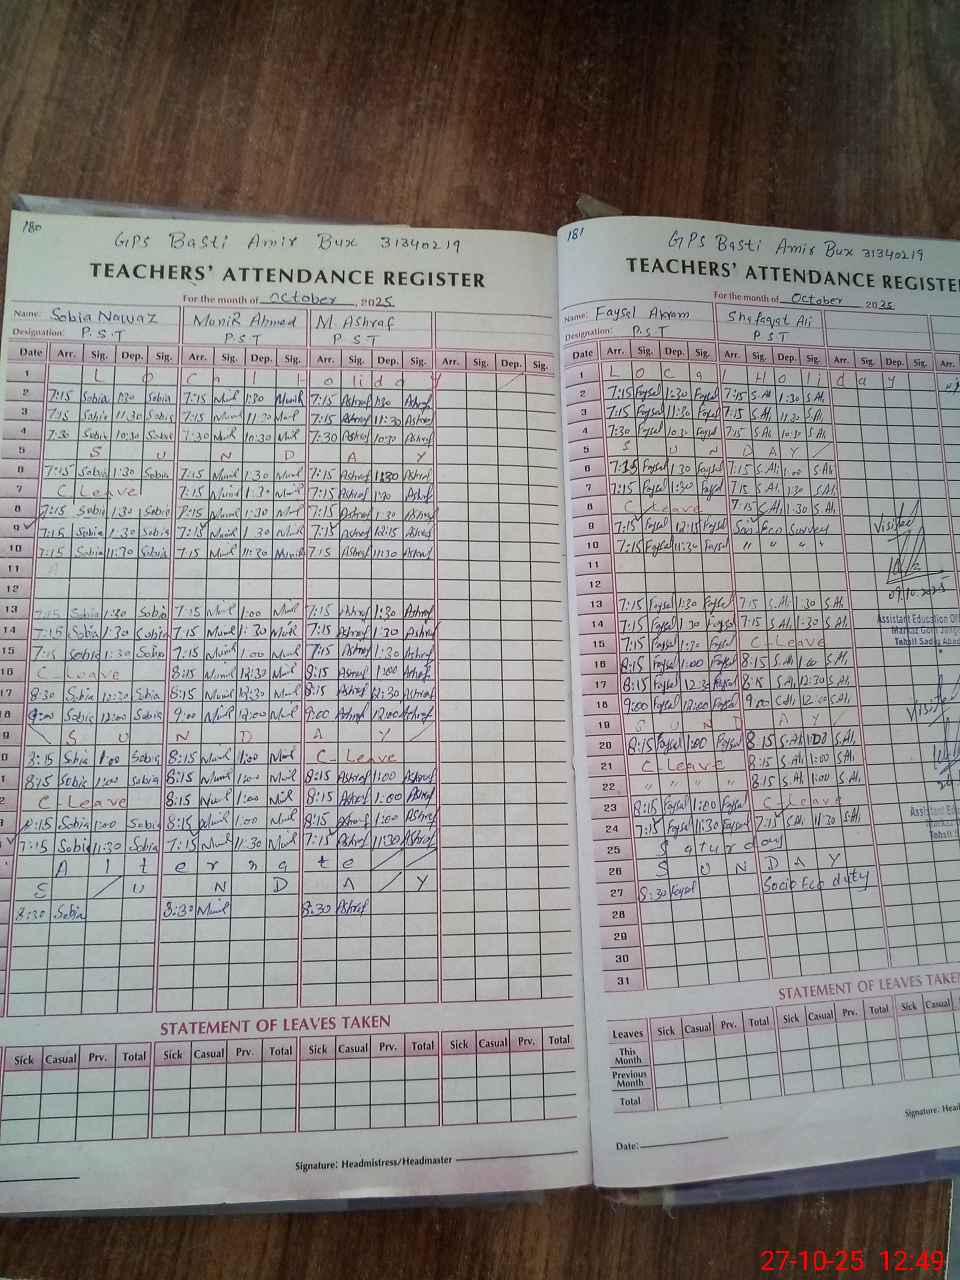 180
GPS Basti Amir Bux 31340219
TEACHERS' ATTENDANCE REGISTER
For the month of October, 2025
Name: Sobia Nawaz Munir Ahmed M Ashraf
Designation: P.S.T P.S.T P.S.T
Date Arr. Sig. Dep. Sig. Arr. Sig. Dep. Sig. Arr. Sig. Dep. Sig. Arr. Sig. Dep. Sig.
1 L o c a l H o l i d a y
2 7:15 Sobia 1:30 Sobia 7:15 Munir 1:30 Munir 7:15 Ashraf 1:30 Ashraf
3 7:15 Sobia 11:30 Sobia 7:15 Munir 11:30 Munir 7:15 Ashraf 11:30 Ashraf
4 7:30 Sobia 10:30 Sobia 7:30 Munir 10:30 Munir 7:30 Ashraf 10:30 Ashraf
5 S U N D A Y
6 7:15 Sobia 1:30 Sobia 7:15 Munir 1:30 Munir 7:15 Ashraf 1:30 Ashraf
7 C Leave 7:15 Munir 1:30 Munir 7:15 Ashraf 1:30 Ashraf
8 7:15 Sobia 1:30 Sobia 7:15 Munir 1:30 Munir 7:15 Ashraf 1:30 Ashraf
9 7:15 Sobia 1:30 Sobia 7:15 Munir 1:30 Munir 7:15 Ashraf 12:15 Ashraf
10 7:15 Sobia 11:30 Sobia 7:15 Munir 11:30 Munir 7:15 Ashraf 11:30 Ashraf
11
12
13 7:15 Sobia 1:30 Sobia 7:15 Munir 1:00 Munir 7:15 Ashraf 1:30 Ashraf
14 7:15 Sobia 1:30 Sobia 7:15 Munir 1:30 Munir 7:15 Ashraf 1:30 Ashraf
15 7:15 Sobia 1:30 Sobia 7:15 Munir 1:00 Munir 7:15 Ashraf 1:30 Ashraf
16 C-Leave 8:15 Munir 12:30 Munir 8:15 Ashraf 1:00 Ashraf
17 8:30 Sobia 12:30 Sobia 8:15 Munir 12:30 Munir 8:15 Ashraf 12:30 Ashraf
18 9:00 Sobia 12:00 Sobia 9:00 Munir 12:00 Munir 9:00 Ashraf 12:00 Ashraf
9 S U N D A Y
0 8:15 Sobia 1:00 Sobia 8:15 Munir 1:00 Munir C-Leave
1 8:15 Sobia 1:00 Sobia 8:15 Munir 1:00 Munir 8:15 Ashraf 1:00 Ashraf
2 C-Leave 8:15 Munir 1:00 Munir 8:15 Ashraf 1:00 Ashraf
8:15 Sobia 1:00 Sobia 8:15 Munir 1:00 Munir 8:15 Ashraf 1:00 Ashraf
7:15 Sobia 11:30 Sobia 7:15 Munir 11:30 Munir 7:15 Ashraf 11:30 Ashraf
A l t e r n a t e
S U N D A Y
8:30 Sobia 8:30 Munir 8:30 Ashraf
STATEMENT OF LEAVES TAKEN
Sick Casual Prv. Total Sick Casual Prv. Total Sick Casual Prv. Total Sick Casual Prv. Total
Signature: Headmistress/Headmaster
181
GPS Basti Amir Bux 31340219
TEACHERS' ATTENDANCE REGISTE
For the month of October 2025
Name: Faysel Akram Shafaqat Ali
Designation: P.S.T PST
Date Arr. Sig. Dep. Sig. Arr. Sig. Dep. Sig. Arr. Sig. Dep. Sig. Arr.
1 L o c a l H o l i d a y
2 7:15 Faysel 1:30 Faysel 7:15 S.Ali 1:30 S.Ali
3 7:15 Faysel 11:30 Faysel 7:15 S.Ali 11:30 S.Ali
4 7:30 Faysel 10:30 Faysel 7:15 S.Ali 10:30 S.Ali
5 S U N D A Y
6 7:15 Faysel 1:30 Faysel 7:15 S.Ali 1:00 S.Ali
7 7:15 Faysel 1:30 Faysel 7:15 S.Ali 1:30 S.Ali
8 C Leave 7:15 S.Ali 1:30 S.Ali
9 7:15 Faysel 12:15 Faysel Soci Eco Survey
10 7:15 Faysel 11:30 Faysel " " " "
Visited
11
12
09.10.2025
13 7:15 Faysel 1:30 Faysel 7:15 S.Ali 1:30 S.Ali
14 7:15 Faysel 1:30 Faysel 7:15 S.Ali 1:30 S.Ali
Assistant Education Off
15 7:15 Faysel 1:30 Faysel C-Leave
Tehsil Sadiq Abad
16 8:15 Faysel 1:00 Faysel 8:15 S.Ali 1:00 S.Ali
17 8:15 Faysel 12:30 Faysel 8:15 S.Ali 12:30 S.Ali
18 9:00 Faysel 12:00 Faysel 9:00 S.Ali 12:00 S.Ali
Visited
19 S U N D A Y
20 8:15 Faysel 1:00 Faysel 8:15 S.Ali 1:00 S.Ali
21 C Leave 8:15 S.Ali 1:00 S.Ali
22 " " " " 8:15 S.Ali 1:00 S.Ali
23 8:15 Faysel 1:00 Faysel C-Leave
Assistant Ed
24 7:15 Faysel 11:30 Faysel 7:15 S.Ali 11:30 S.Ali
25 Saturday
26 S U N D A Y
27 8:30 Faysel Socio Eco duty
28
29
30
31
STATEMENT OF LEAVES TAKEN
Leaves Sick Casual Prv. Total Sick Casual Prv. Total Sick Casual
This Month
Previous Month
Total
Signature: Head
Date:
27-10-25 12:49